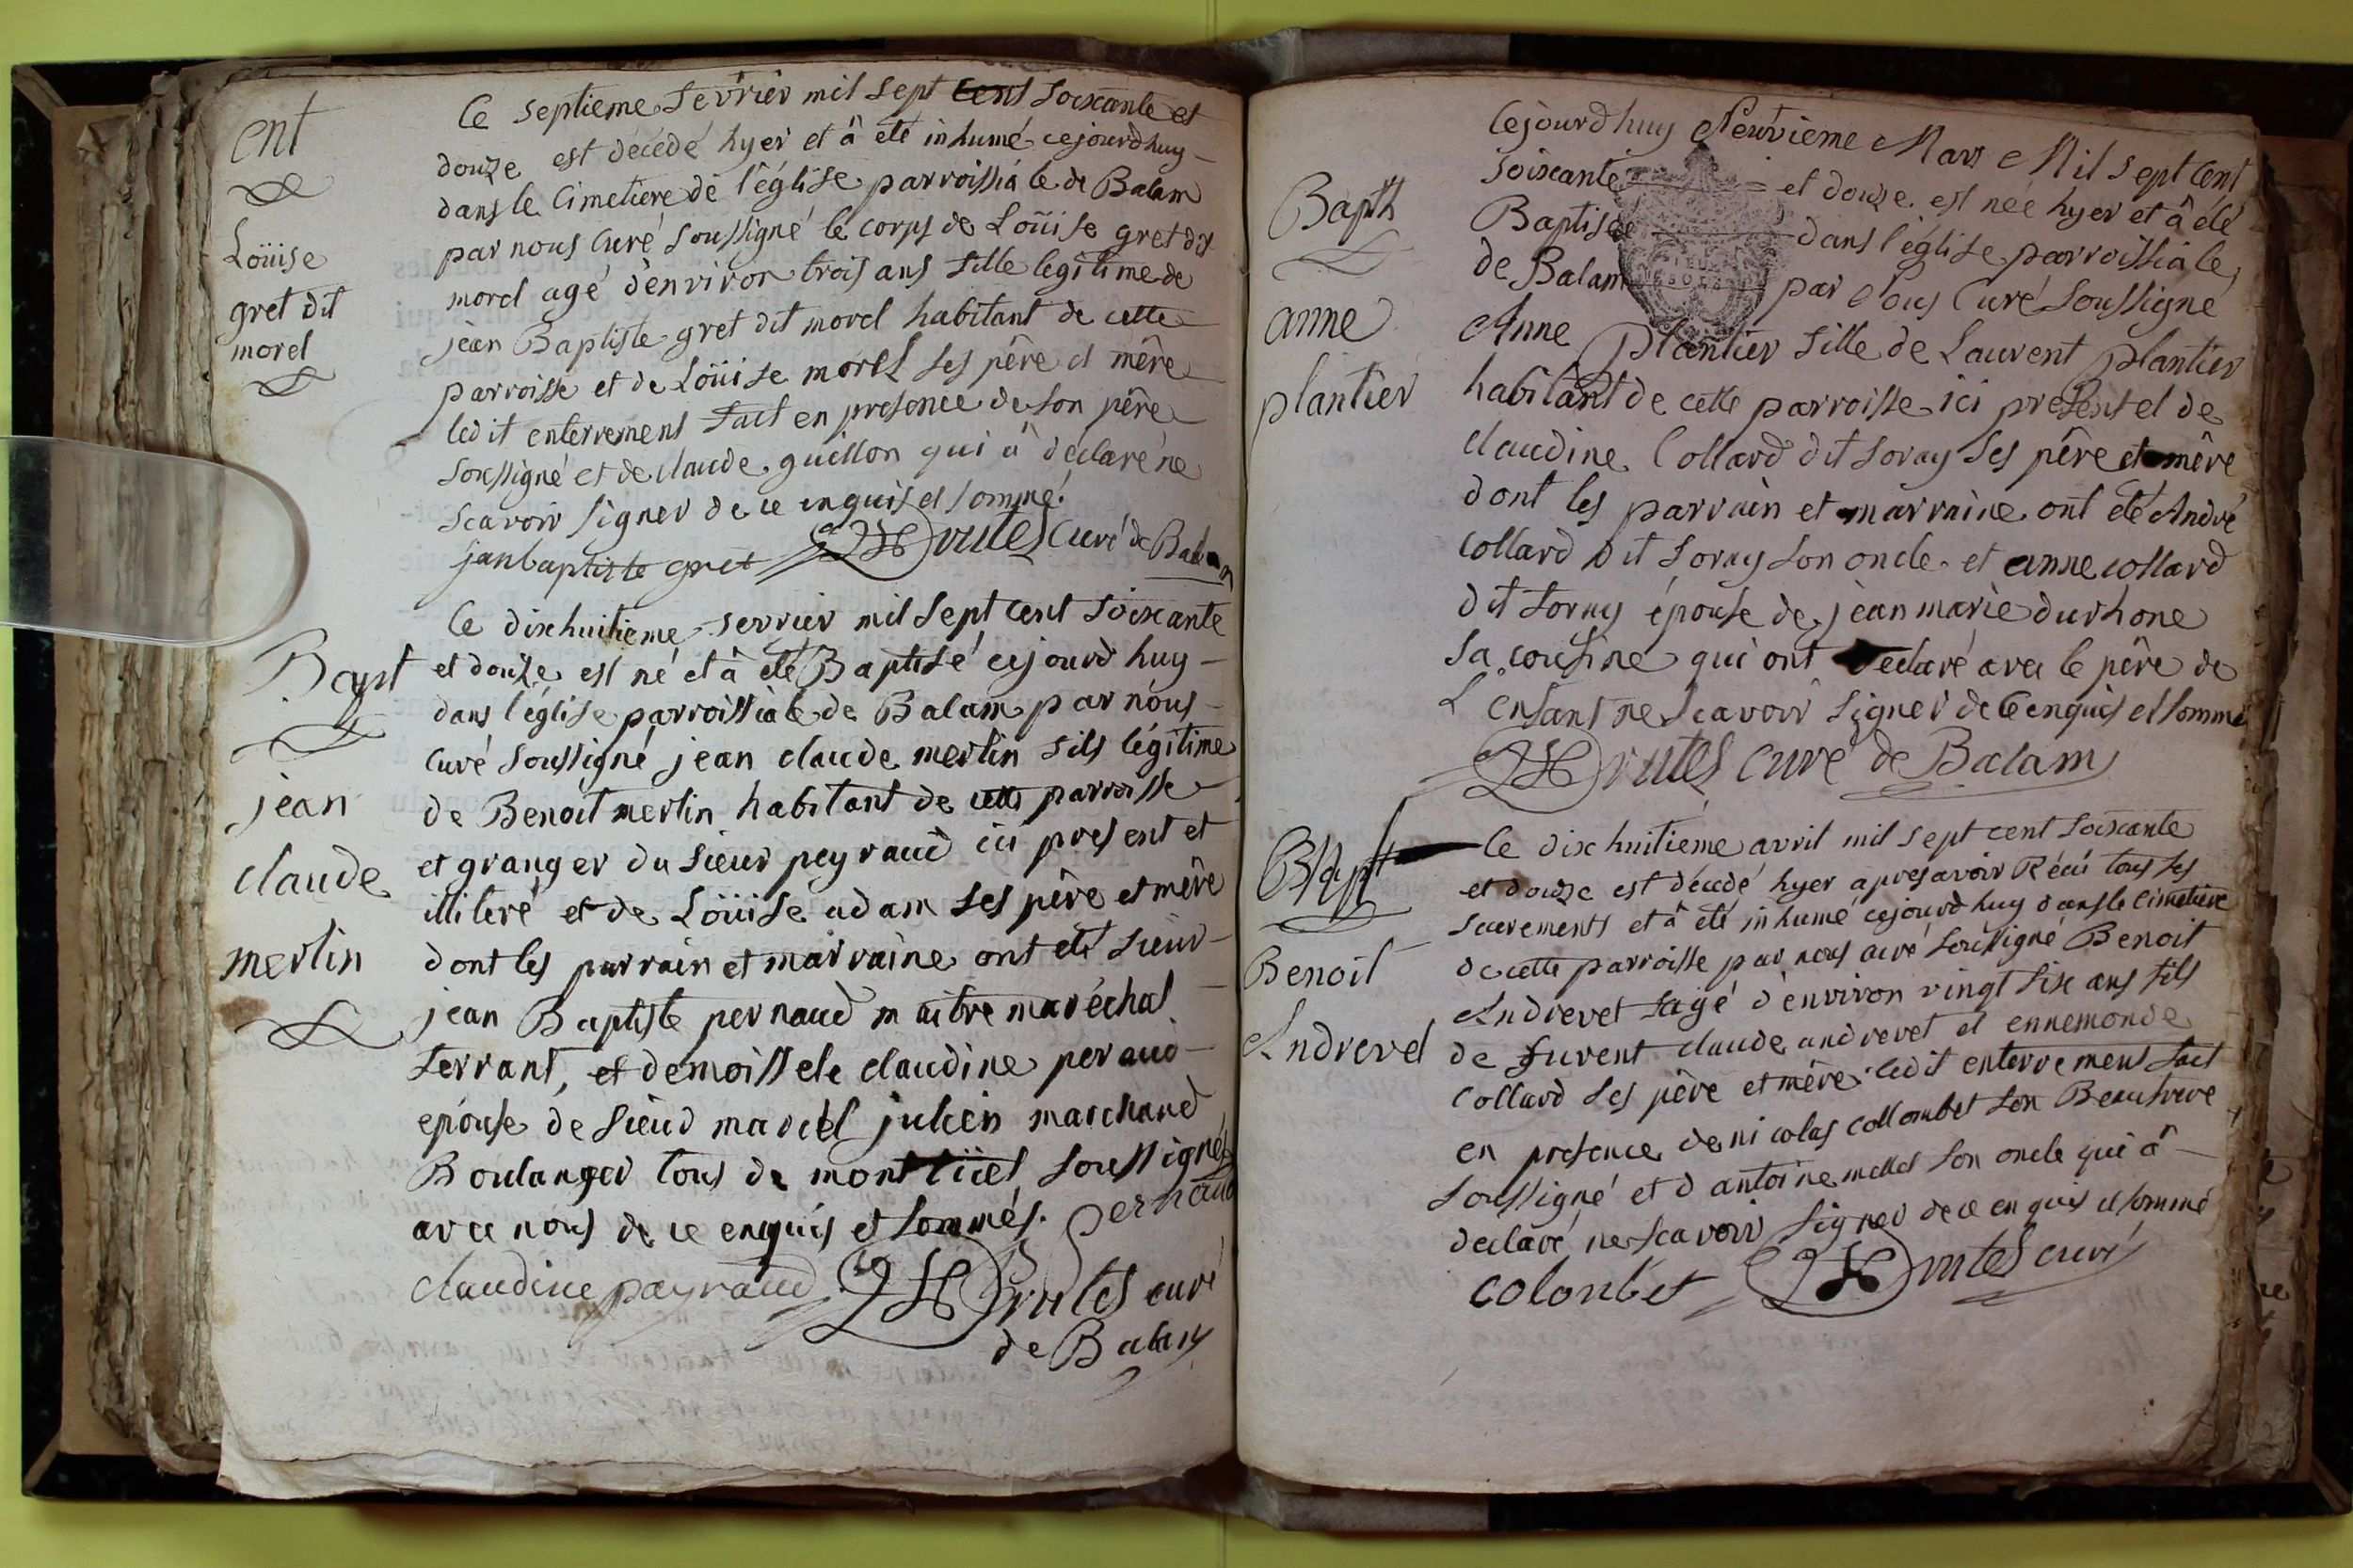 ent
Loüise
gret dit
morel
Le septieme fevrier mil sept cent soixante et
douze est décédé hyer et â eté inhumé cejourdhuy
dans le Cimetiere de l'église parroissiale de Balam
par nous Curé soussigné le corps de Loüise gret dit
morel agé d'environ trois ans fille legitime de
jean Baptiste gret dit morel habitant de cette
parroisse et de Loüise morel ses pêre et mêre
ledit enterrement fait en presence de son pêre
soussigné et de claude guillon qui â declaré ne
scavoir signer de ce enquis et sommé.
janbaptiste gret Drutel Curé de Balam
Bapt
jean
claude
merlin
Le dixhuitieme fevrier mil sept cent soixante
et douze est né et â eté Baptisé cejourd huy
dans l'église parroissiale de Balam par nous
Curé soussigné jean claude merlin fils légitime
de Benoit merlin habitant de cette parroisse
et granger du sieur peyraud ici present et
illiteré et de Loüise adam ses pêre et mêre
dont les parrain et marraine ont eté sieur
jean Baptiste pernaud maitre maréchal
ferrant, et demoisselle claudine peraud
epouse de sieur marcel julien marchand
Boulanger tous de montlüel soussignés
avec nous de ce enquis et sommés. pernaud
claudine payraud Drutel curé
de Balam
Bapt
anne
plantier
Cejourdhuy Neuvieme Mars Mil sept Cent
soixante et douze est née hyer et â été
Baptisée dans l'église parroissiale
de Balam par Nous Curé soussigné
Anne Plantier fille de Laurent plantier
habitant de cette parroisse ici present et de
claudine Collard dit foray ses pêre et mêre
dont les parrain et marraine ont eté André
Collard dit foray son oncle et anne collard
dit foray épouse de jean marie durhone
sa cousine qui ont declaré avec le pêre de
L'enfant ne scavoir signer de ce enquis et sommé
Drutel curé de Balam
Bapt
Benoit
Andrevet
Le dixhuitieme avril mil sept cent soixante
et douze est décedé hyer apres avoir Récû tous ses
sacrements et â été inhumé cejourdhuy dans le Cimetiere
de cette parroisse par nous curé soussigné Benoit
Andrevet agé d'environ vingt six ans fils
de furent claude andrevet et ennemonde
Collard ses pêre et mêre. ledit enterrement fait
en presence de nicolas collombet son Beaufrere
soussigné et d antoine mollet son oncle qui â
declaré ne scavoir signer de ce enquis et sommé
colombet Drutel curé